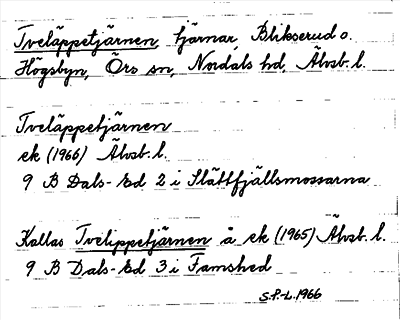 Tveläppetjärnen, tjärnar, Blikserud o.
Högsbyn, Örs sn, Nordals hd, Älvsb. l.
Tveläppetjärnen
ek (1966) Älvsb. l.
9 B Dals-Ed 2 i Slättfjällsmossarna
Kallas Tvelippetjärnen å ek (1965) Älvsb. l.
9 B Dals-Ed 3 i Famshed
S.P-L. 1966